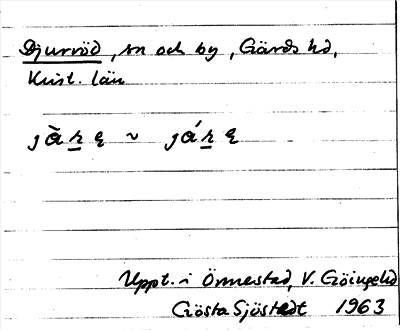 Djurröd, sn och by, Gärds hd,
Krist. län
jàrę ~ járę
Uppt. i Önnestad, V. Göinge hd
Gösta Sjöstedt 1963